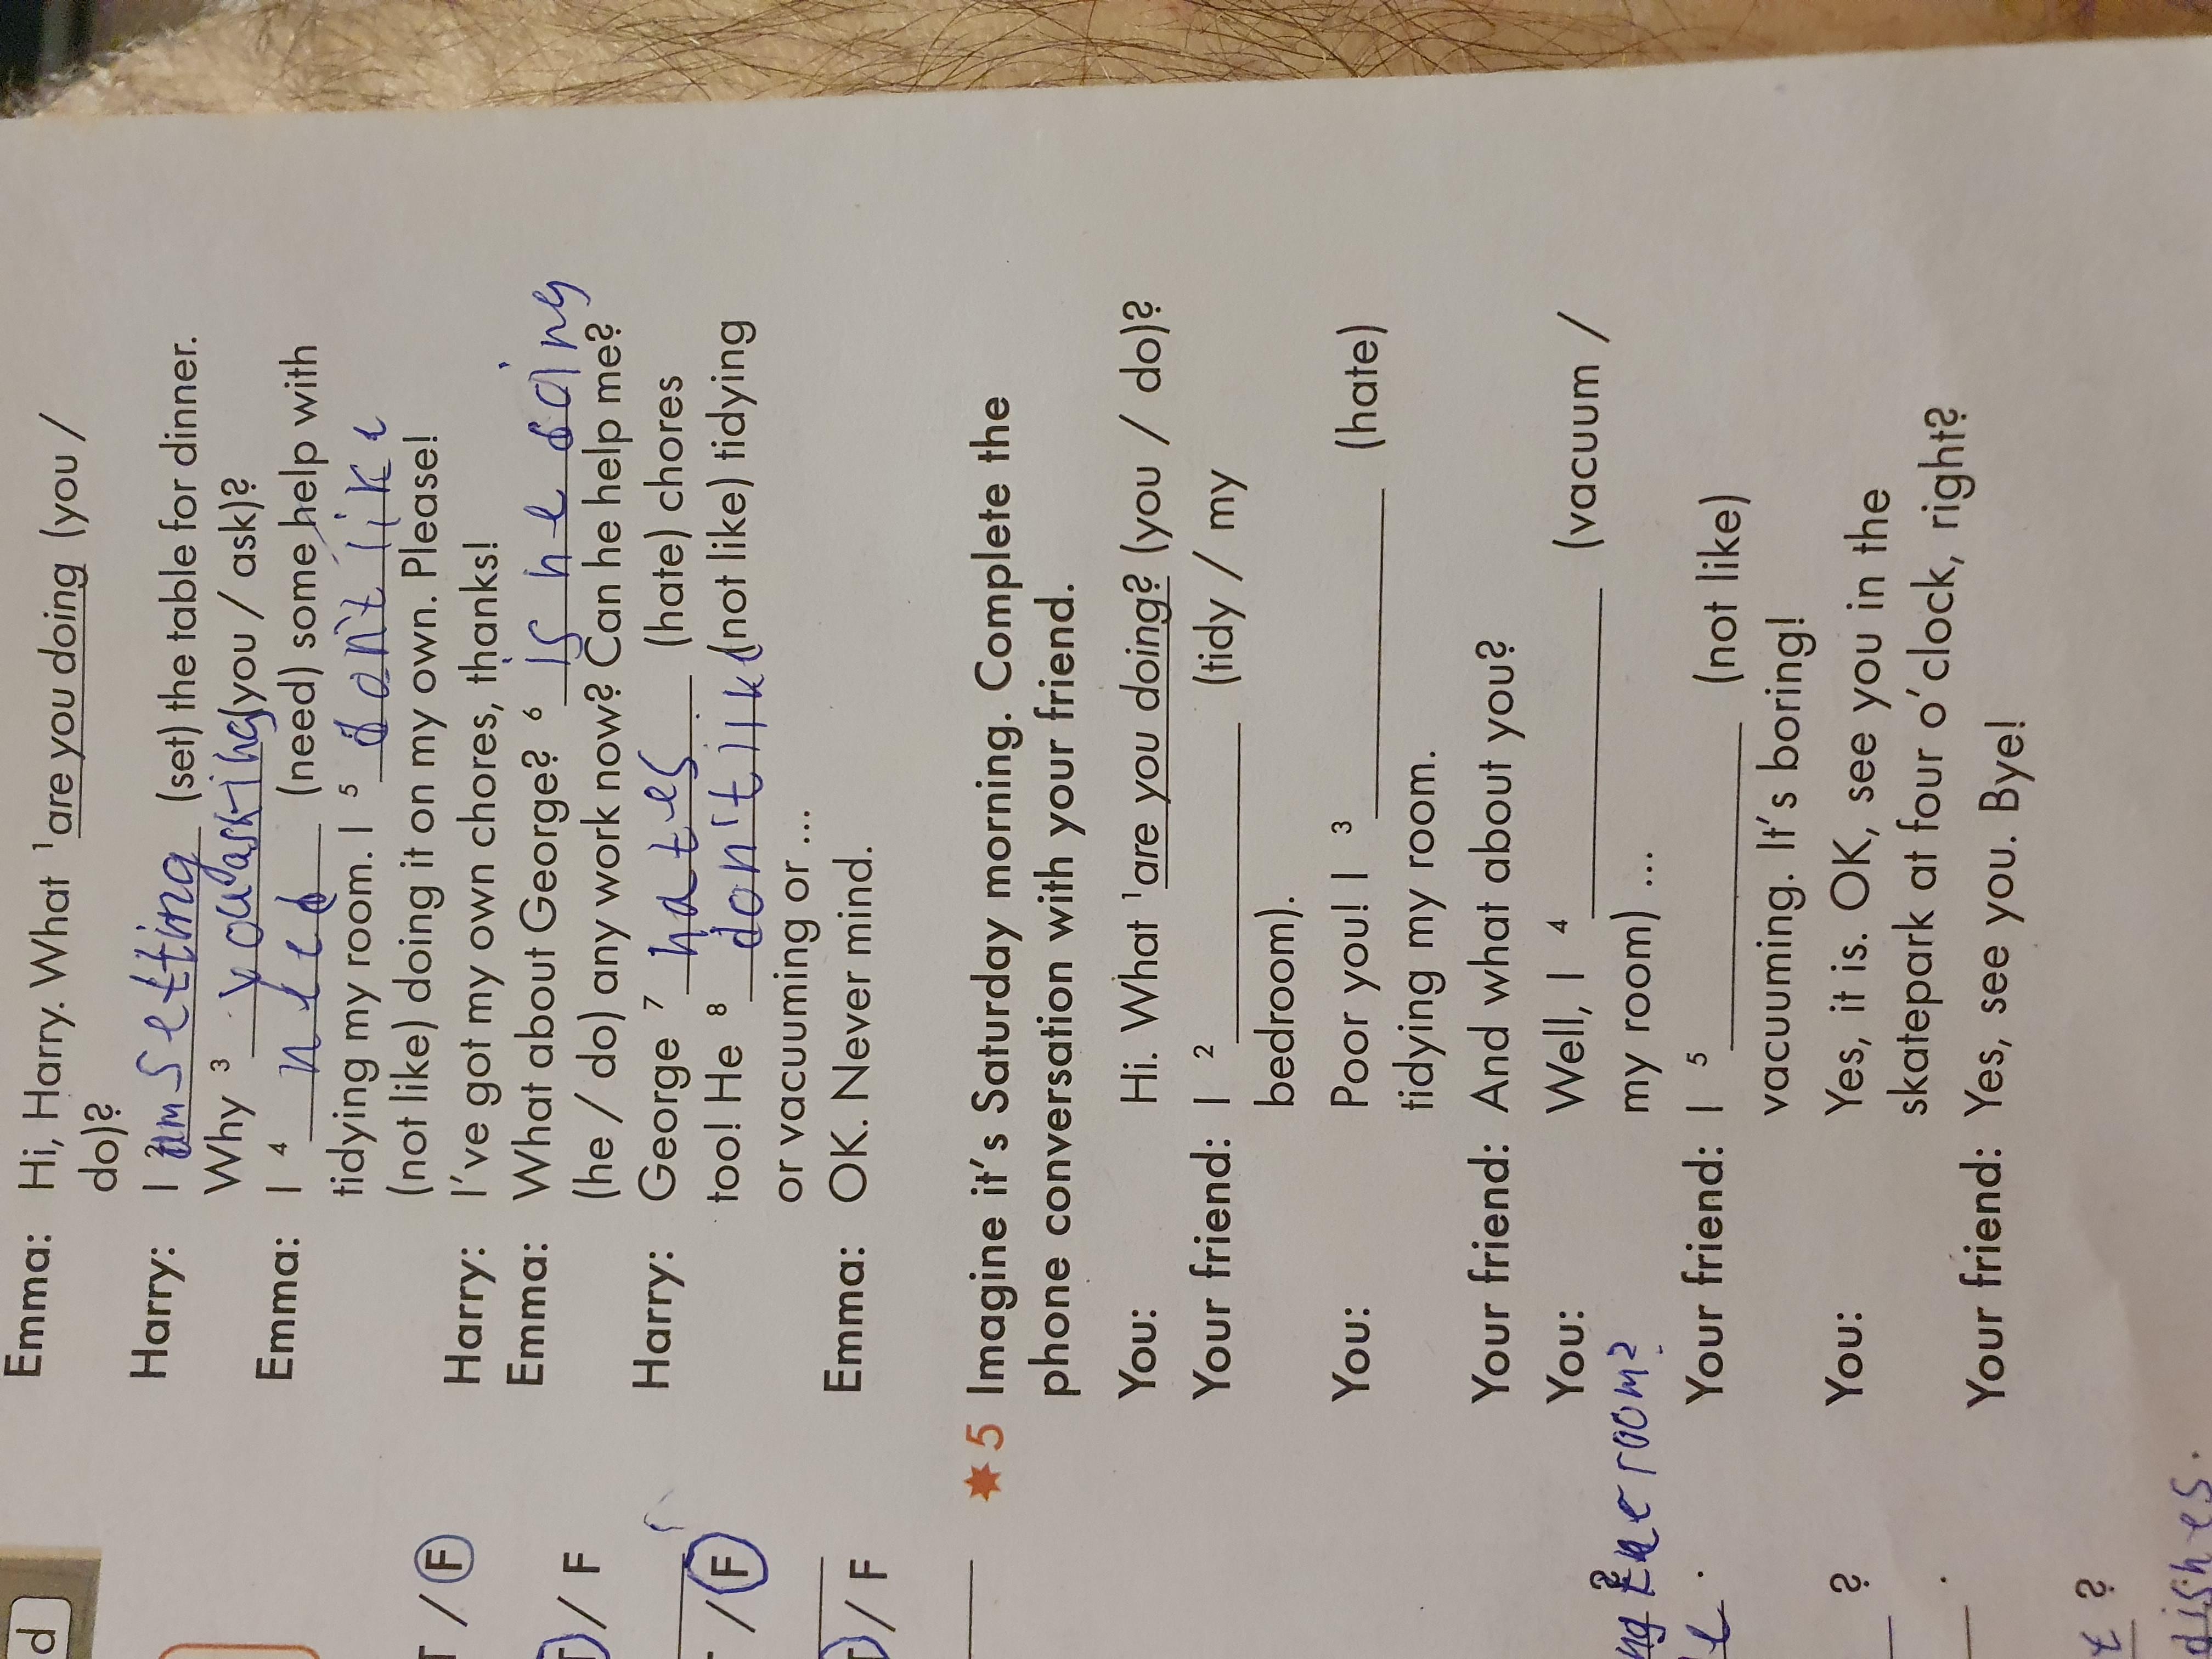 d
T / F
T / F
T / F
T / F
ng the room?
?
.
?
dishes.
Emma: Hi, Harry. What ¹are you doing (you /
do)?
Harry: I ² am setting (set) the table for dinner.
Why ³ you asking (you / ask)?
Emma: I ⁴ need (need) some help with
tidying my room. I ⁵ don't like
(not like) doing it on my own. Please!
Harry: I've got my own chores, thanks!
Emma: What about George? ⁶ is he doing
(he / do) any work now? Can he help me?
Harry: George ⁷ hates (hate) chores
too! He ⁸ don't like (not like) tidying
or vacuuming or ...
Emma: OK. Never mind.
5 Imagine it's Saturday morning. Complete the
phone conversation with your friend.
You: Hi. What ¹are you doing? (you / do)?
Your friend: I ² (tidy / my
bedroom).
You: Poor you! I ³ (hate)
tidying my room.
Your friend: And what about you?
You: Well, I ⁴ (vacuum /
my room) ...
Your friend: I ⁵ (not like)
vacuuming. It's boring!
You: Yes, it is. OK, see you in the
skatepark at four o'clock, right?
Your friend: Yes, see you. Bye!